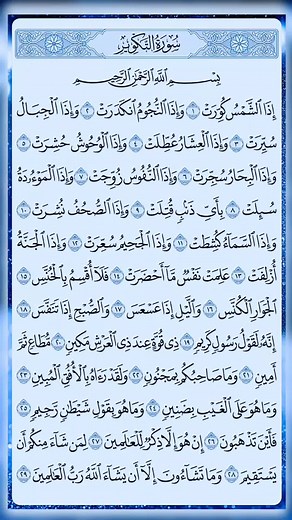 سُورَةُ التَّكْوِيرِ
بِسْمِ اللَّهِ الرَّحْمَٰنِ الرَّحِيمِ
إِذَا الشَّمْسُ كُوِّرَتْ ١ وَإِذَا النُّجُومُ انكَدَرَتْ ٢ وَإِذَا الْجِبَالُ
سُيِّرَتْ ٣ وَإِذَا الْعِشَارُ عُطِّلَتْ ٤ وَإِذَا الْوُحُوشُ حُشِرَتْ ٥
وَإِذَا الْبِحَارُ سُجِّرَتْ ٦ وَإِذَا النُّفُوسُ زُوِّجَتْ ٧ وَإِذَا الْمَوْءُۥدَةُ
سُئِلَتْ ٨ بِأَيِّ ذَنۢبٍ قُتِلَتْ ٩ وَإِذَا الصُّحُفُ نُشِرَتْ ١٠
وَإِذَا السَّمَاءُ كُشِطَتْ ١١ وَإِذَا الْجَحِيمُ سُعِّرَتْ ١٢ وَإِذَا الْجَنَّةُ
أُزْلِفَتْ ١٣ عَلِمَتْ نَفْسٌ مَّا أَحْضَرَتْ ١٤ فَلَا أُقْسِمُ بِالْخُنَّسِ ١٥
الْجَوَارِ الْكُنَّسِ ١٦ وَاللَّيْلِ إِذَا عَسْعَسَ ١٧ وَالصُّبْحِ إِذَا تَنَفَّسَ ١٨
إِنَّهُ لَقَوْلُ رَسُولٍ كَرِيمٍ ١٩ ذِي قُوَّةٍ عِندَ ذِي الْعَرْشِ مَكِينٍ ٢٠ مُّطَاعٍ ثَمَّ
أَمِينٍ ٢١ وَمَا صَاحِبُكُم بِمَجْنُونٍ ٢٢ وَلَقَدْ رَءَاهُ بِالْأُفُقِ الْمُبِينِ ٢٣
وَمَا هُوَ عَلَى الْغَيْبِ بِضَنِينٍ ٢٤ وَمَا هُوَ بِقَوْلِ شَيْطَانٍ رَّجِيمٍ ٢٥
فَأَيْنَ تَذْهَبُونَ ٢٦ إِنْ هُوَ إِلَّا ذِكْرٌ لِّلْعَالَمِينَ ٢٧ لِمَن شَاءَ مِنكُمْ أَن
يَسْتَقِيمَ ٢٨ وَمَا تَشَاءُونَ إِلَّا أَن يَشَاءَ اللَّهُ رَبُّ الْعَالَمِينَ ٢٩